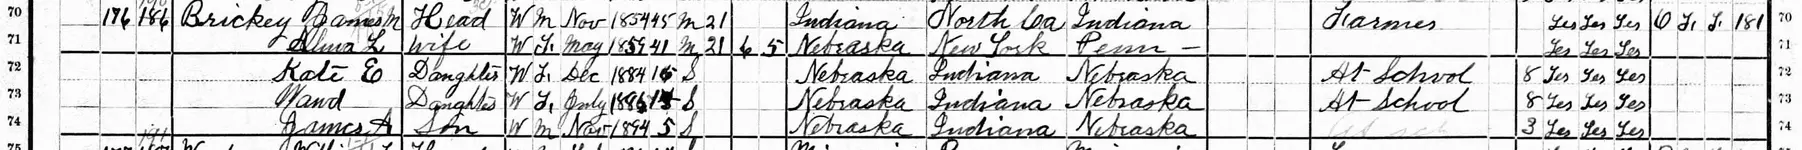 70 176 186 Brickey James M Head W M Nov 1854 45 M 21 Indiana North Ca Indiana Farmer Yes Yes Yes O F F 181 70
71 Alma L Wife W F May 1859 41 M 21 6 5 Nebraska New York Penn - Yes Yes Yes 71
72 Kate E Daughter W F Dec 1884 15 S Nebraska Indiana Nebraska At School 8 Yes Yes Yes 72
73 Daughter W F July S Nebraska Indiana Nebraska At School 8 Yes Yes Yes 73
74 James A Son W M Nov 1894 5 S Nebraska Indiana Nebraska 3 Yes Yes Yes 74
75